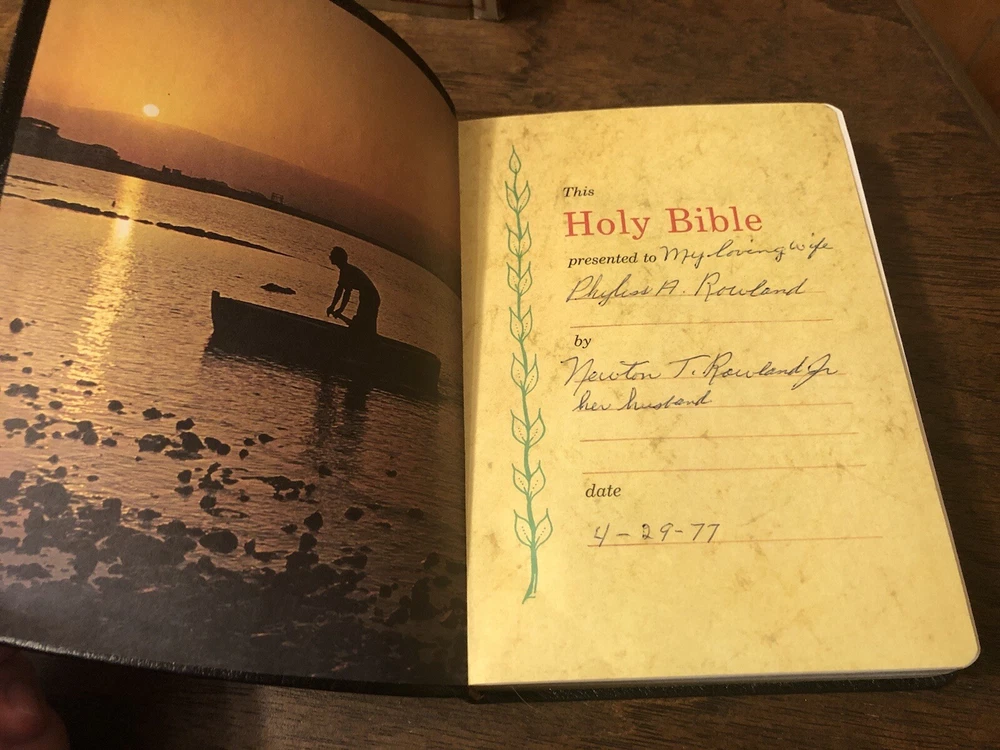 This
Holy Bible
presented to My loving wife
Phyliss A. Rowland
by
Newton T. Rowland Jr
her husband
date
4-29-77